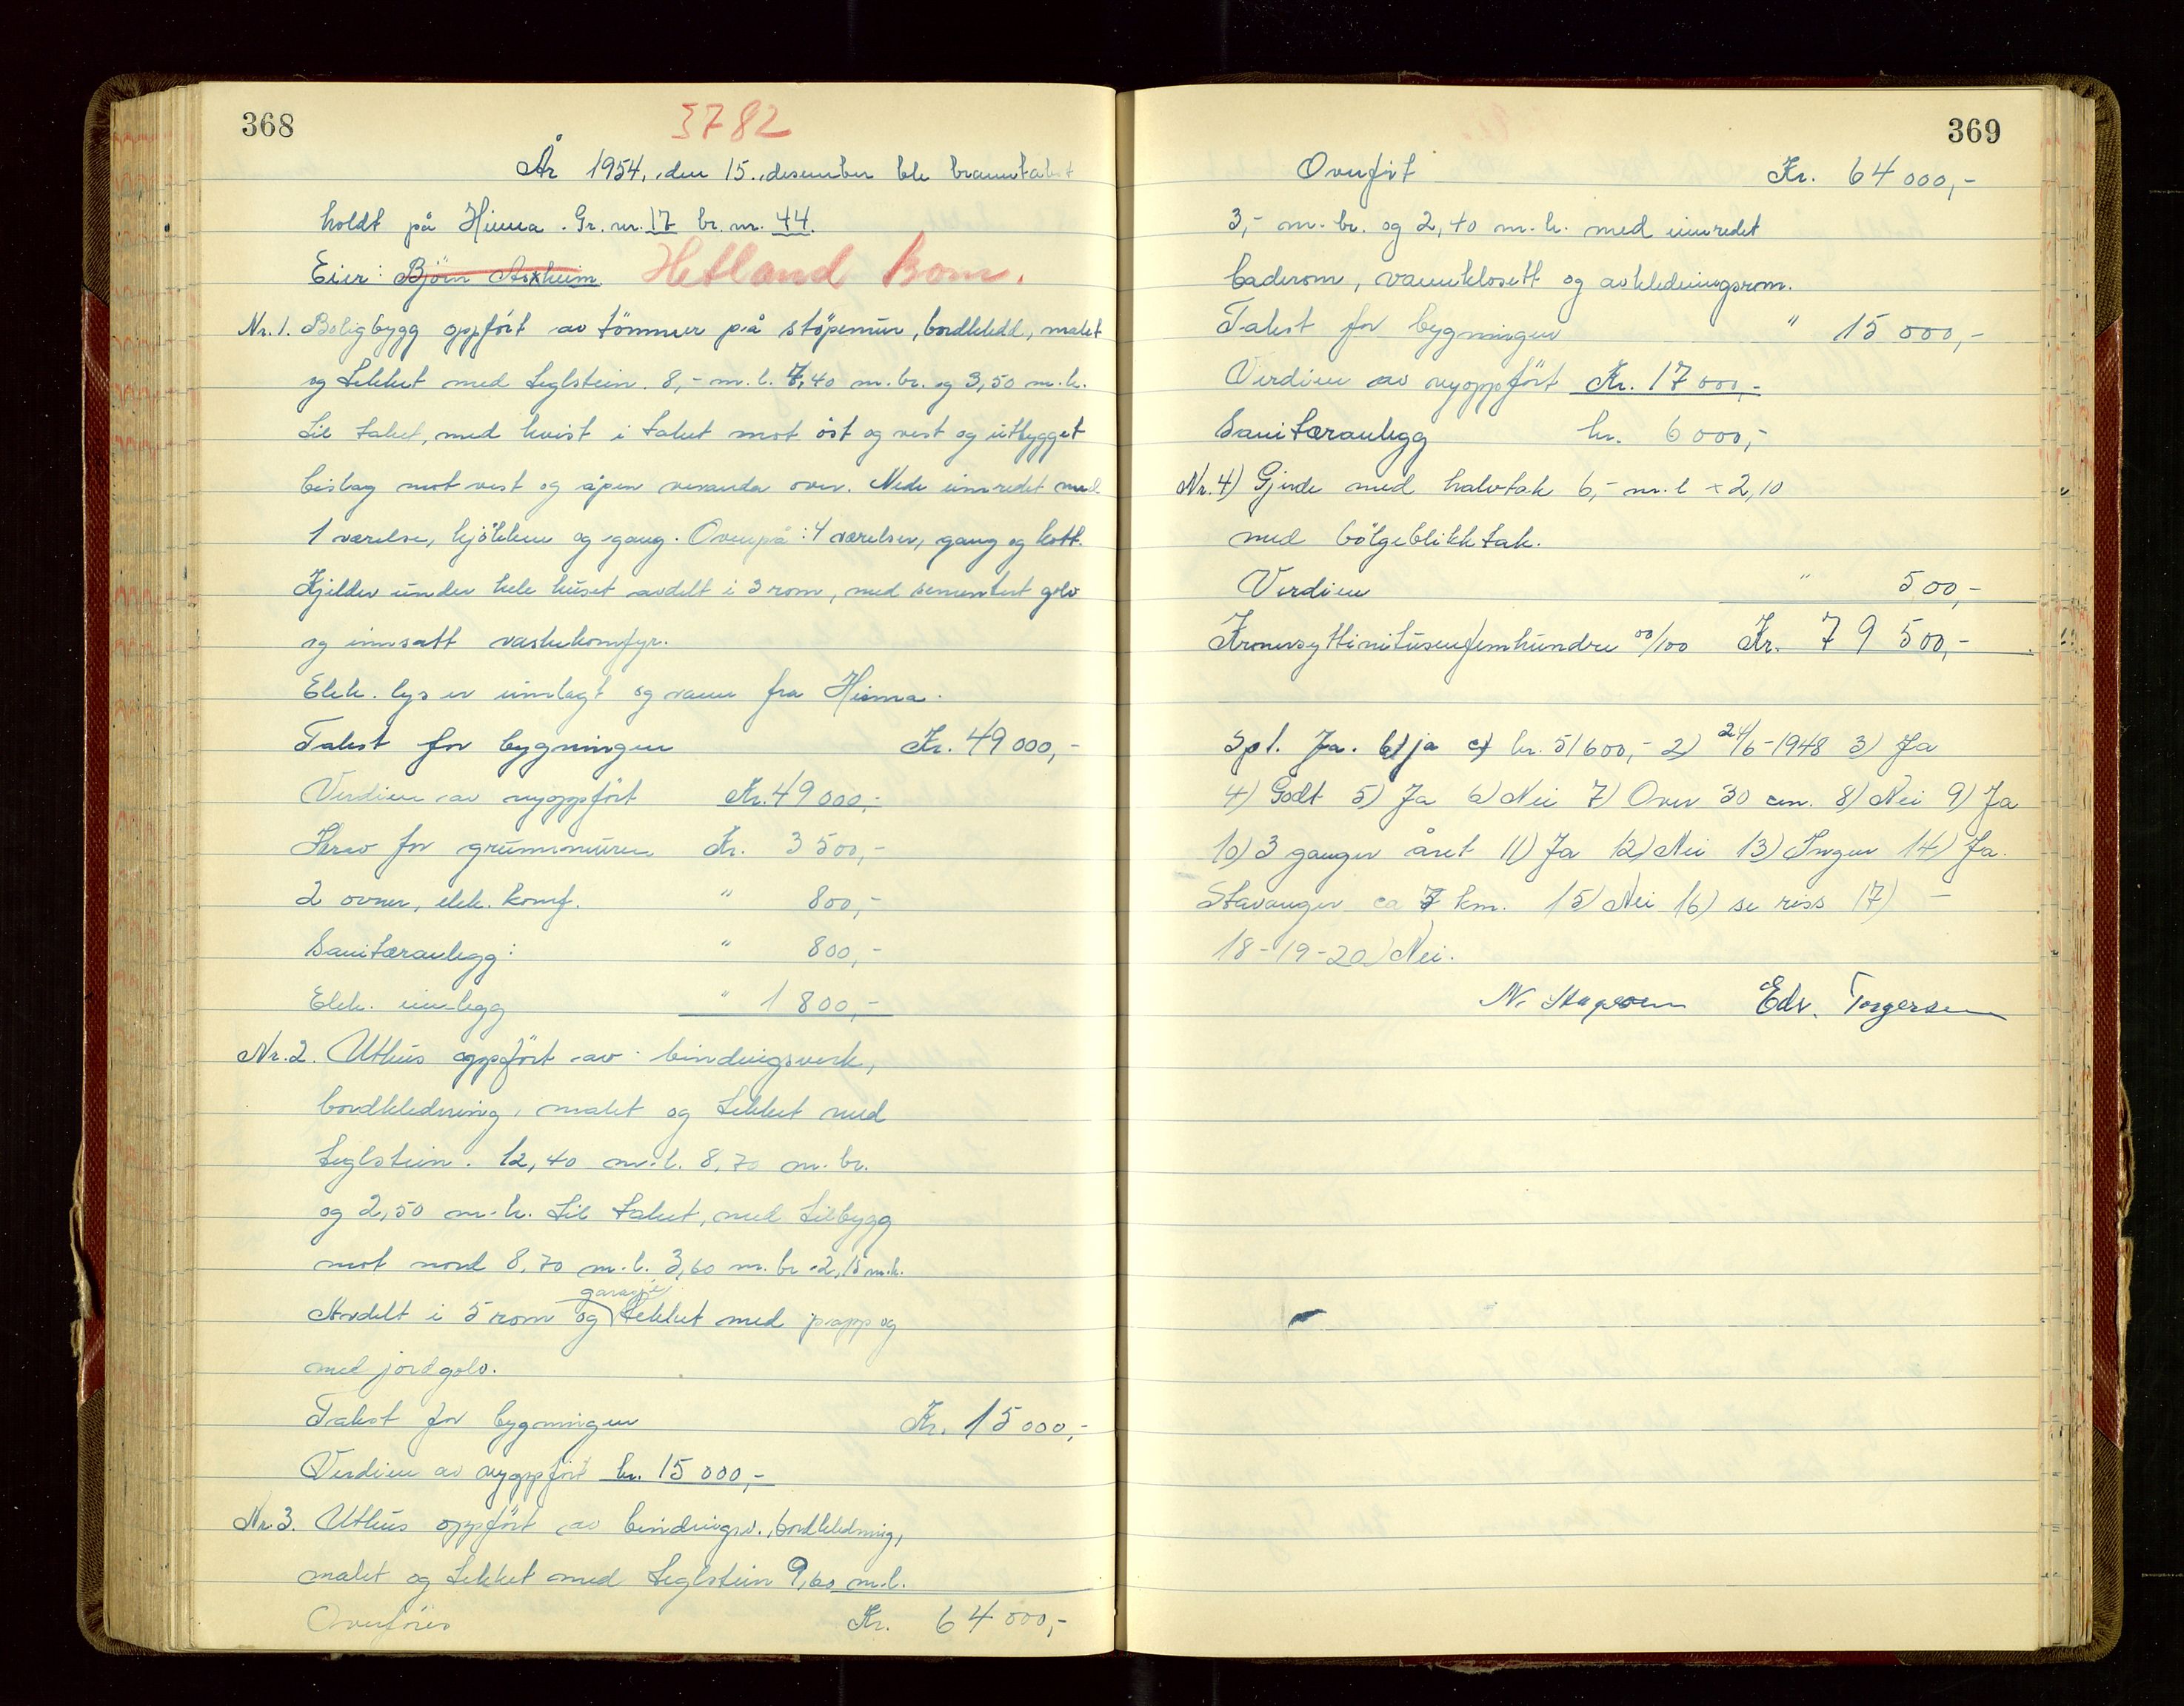 368
3782
År 1954, den 15. desember ble branntakst
holdt på Hinna. Gr. nr. 17 br. nr. 44.
Eier: Björn Askheim. Hetland Kom.
Nr. 1. Boligbygg oppfört av tömmer på stöpemur, bordkledd, malet
og tekket med teglstein. 8,- m.l. 7,40 m. br. og 3,50 m.h.
til taket, med kvist i taket mot öst og vest og utbygget
bislag mot vest og åpen veranda over. Nede innredet med
1 værelse, kjökken og gang. Ovenpå: 4 værelser, gang og kott.
Kjelder under hele huset avdelt i 3 rom, med sementert golv
og innsatt vaskekomfyr.
Elek. lys er innlagt og vann fra Hinna.
Takst for bygningen Kr. 49 000,-
Verdien av nyoppfört Kr. 49 000,-
Herav for grunnmuren Kr. 3 500,-
2 ovner, elek. komf. " 800,-
Sanitæranlegg: " 800,-
Elek. innlegg " 1 800,-
Nr. 2. Uthus oppfört av bindingsverk,
bordkledning, malet og tekket med
teglstein. 12,40 m.l. 8,70 m. br.
og 2,50 m.h. til taket, med tilbygg
mot nord 8,70 m.l. 3,60 m. br. 2,15 m.h.
garasje
Avdelt i 5 rom og tekket med papp og
med jordgolv.
Takst for bygningen Kr. 15 000,-
Verdien av nyoppfört kr. 15 000,-
Nr. 3. Uthus oppfört av bindingsv., bordkledning,
malet og tekket med teglstein 9,60 m.l.
Overföres Kr. 64 000,-
369
Overfört Kr. 64 000,-
3,- m. br. og 2,40 m.h. med innredet
baderom, vannklosett og avkledningsrom.
Takst for bygningen " 15 000,-
Verdien av nyoppfört Kr. 17 000,-
Sanitæranlegg kr. 6 000,-
Nr. 4) Gjerde med halvtak 6,- m.l × 2,10
med bölgeblikktak.
Verdien " 500,-
Kronersyttinitusenfemhundre 00/100 Kr. 79 500,-
Spl. Ja. b) ja c) kr. 51600,- 2) 24/6-1948 3) Ja
4) Godt 5) Ja 6) Nei 7) Over 30 cm. 8) Nei 9) Ja
10) 3 ganger året 11) Ja 12) Nei 13) Ingen 14) Ja.
Stavanger ca 7 km. 15) Nei 16) se riss 17) -
18-19-20) Nei.
N. Edv. Torgersen